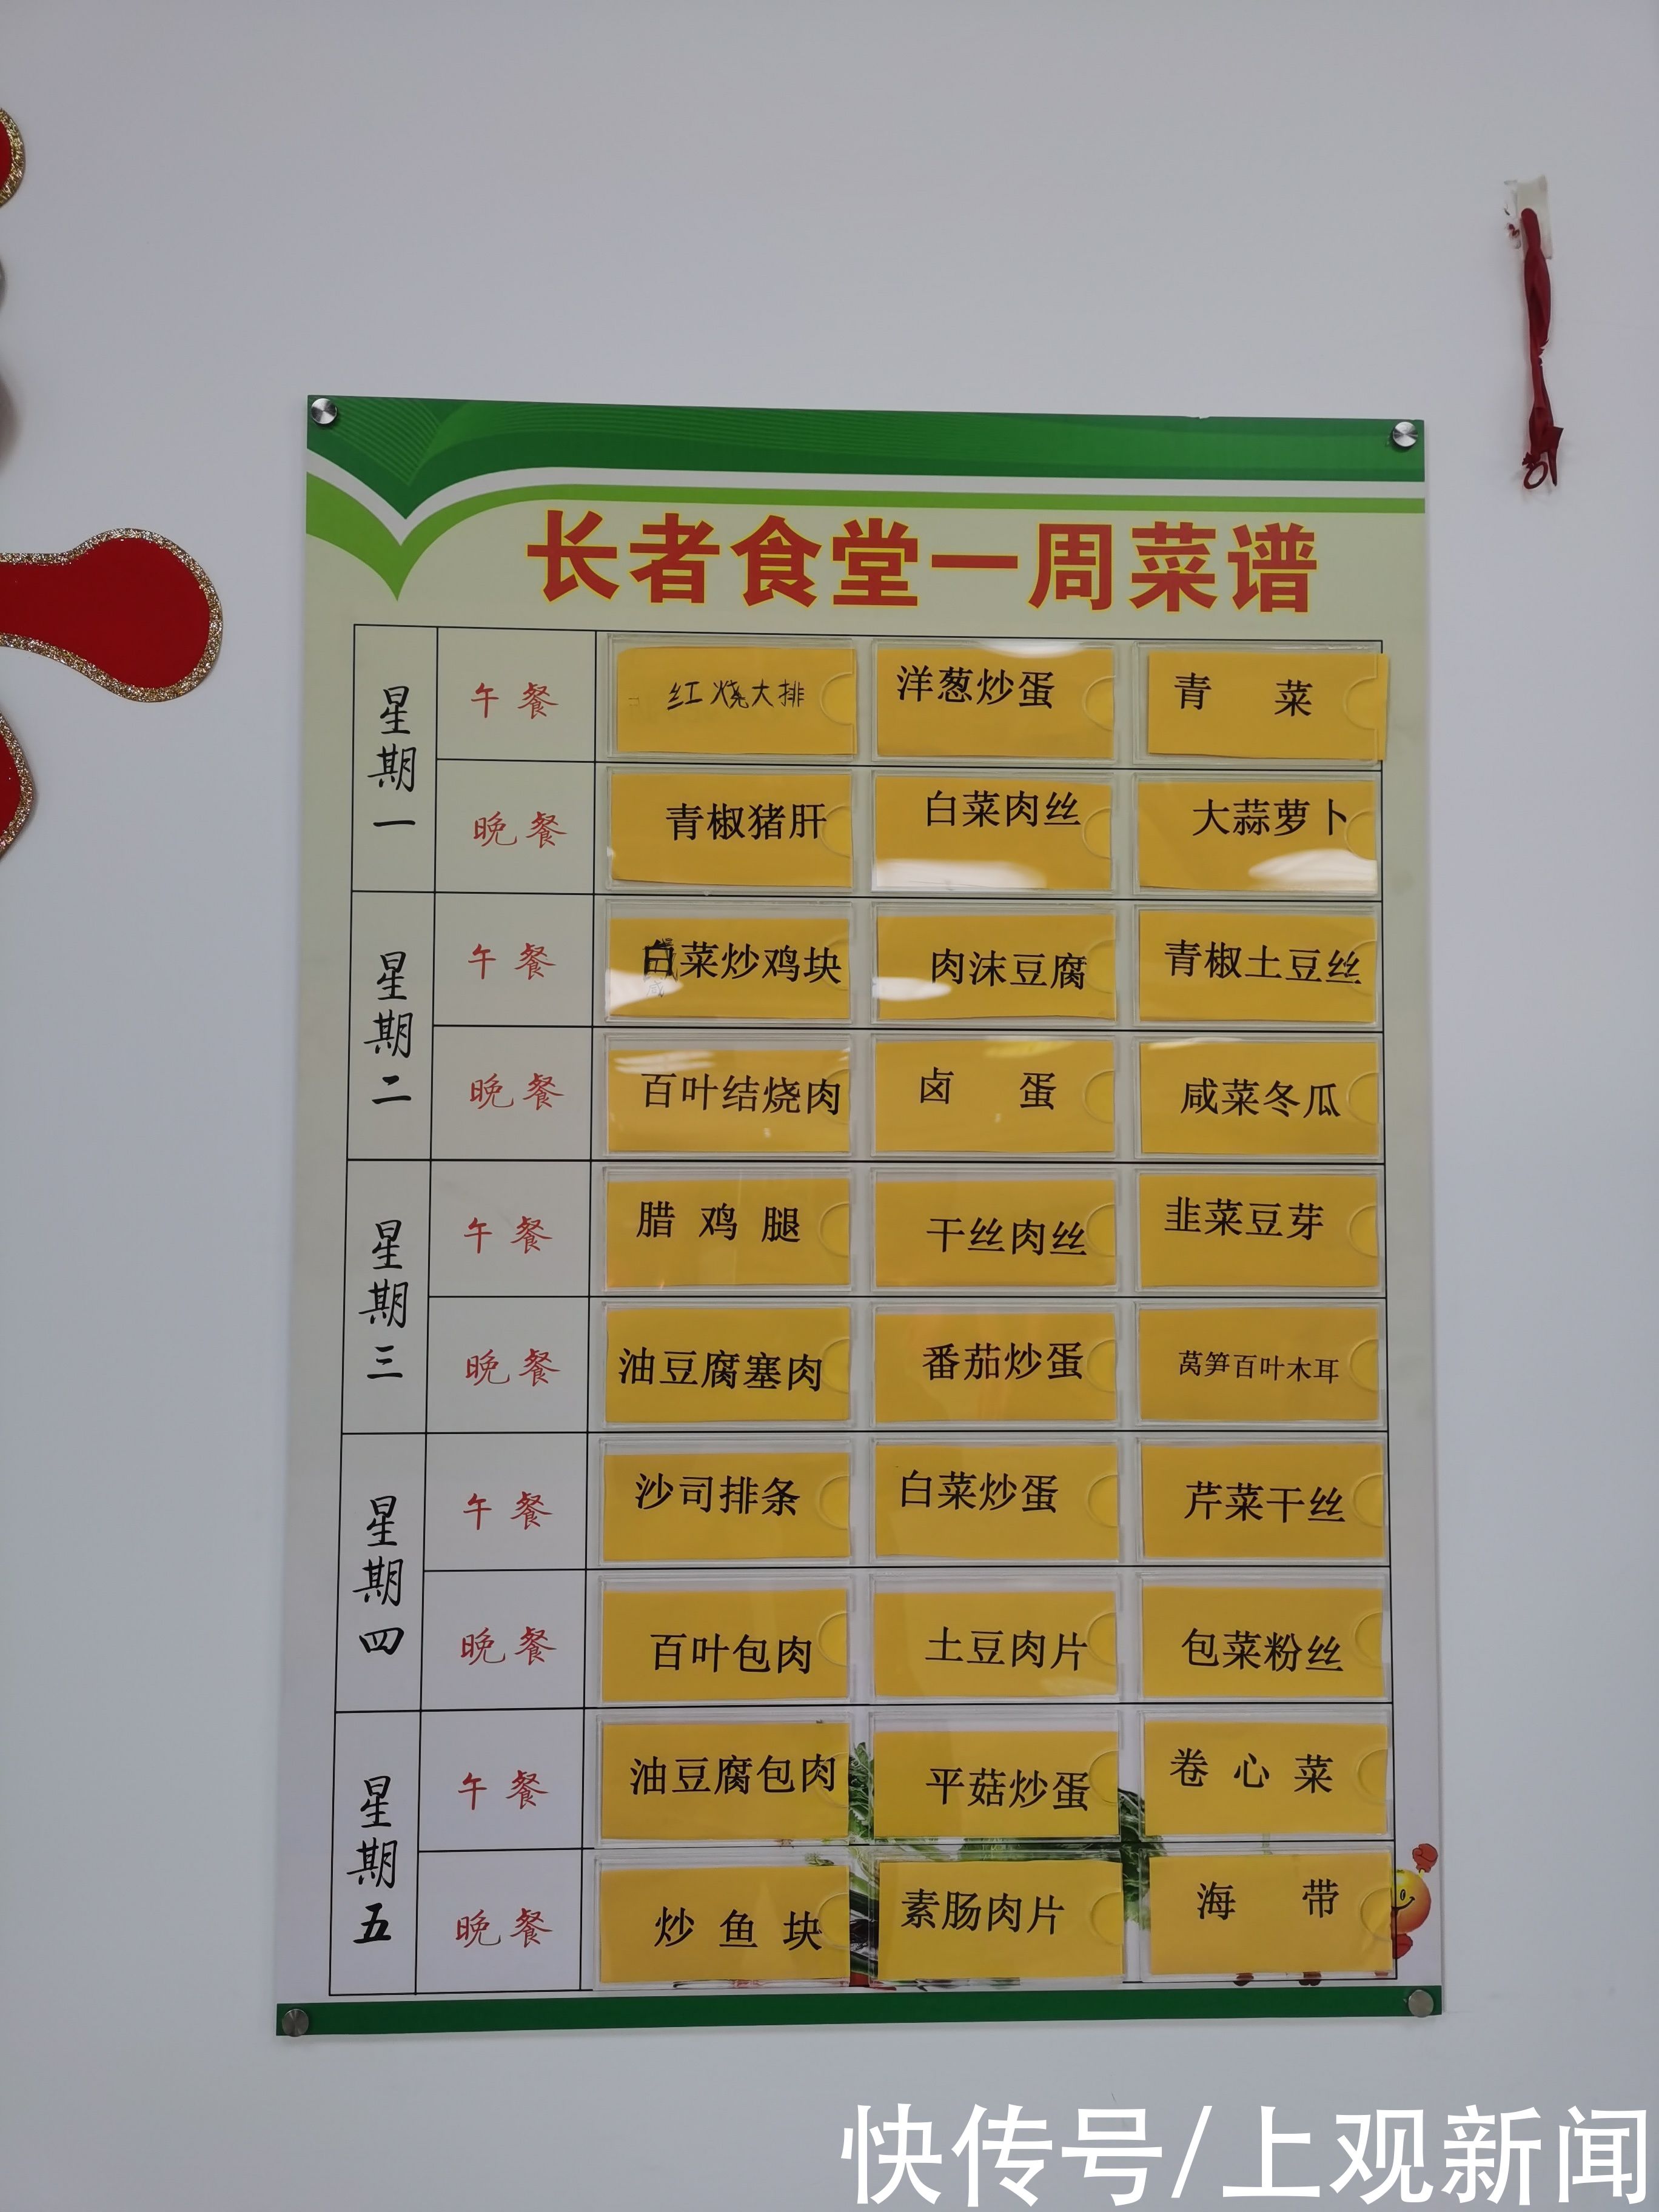 长者食堂一周菜谱
星期一
午餐 红烧大排 洋葱炒蛋 青菜
晚餐 青椒猪肝 白菜肉丝 大蒜萝卜
星期二
午餐 菜炒鸡块 肉沫豆腐 青椒土豆丝
晚餐 百叶结烧肉 卤蛋 咸菜冬瓜
星期三
午餐 腊鸡腿 干丝肉丝 韭菜豆芽
晚餐 油豆腐塞肉 番茄炒蛋 莴笋百叶木耳
星期四
午餐 沙司排条 白菜炒蛋 芹菜干丝
晚餐 百叶包肉 土豆肉片 包菜粉丝
星期五
午餐 油豆腐包肉 平菇炒蛋 卷心菜
晚餐 炒鱼块 素肠肉片 海带
快传号/上观新闻